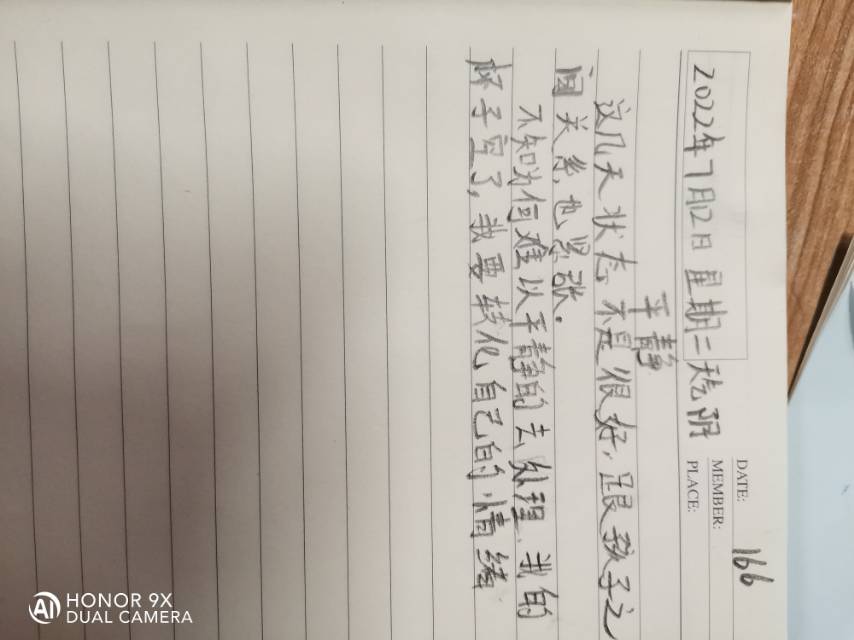 DATE: 166
MEMBER:
PLACE:
2022年7月12日 星期二 天气 阴
平静
这几天状态不是很好,跟孩子之
间关系也紧张.
不知为何难以平静的去处理.我的
杯子空了,我要转化自己的情绪
HONOR 9X
DUAL CAMERA